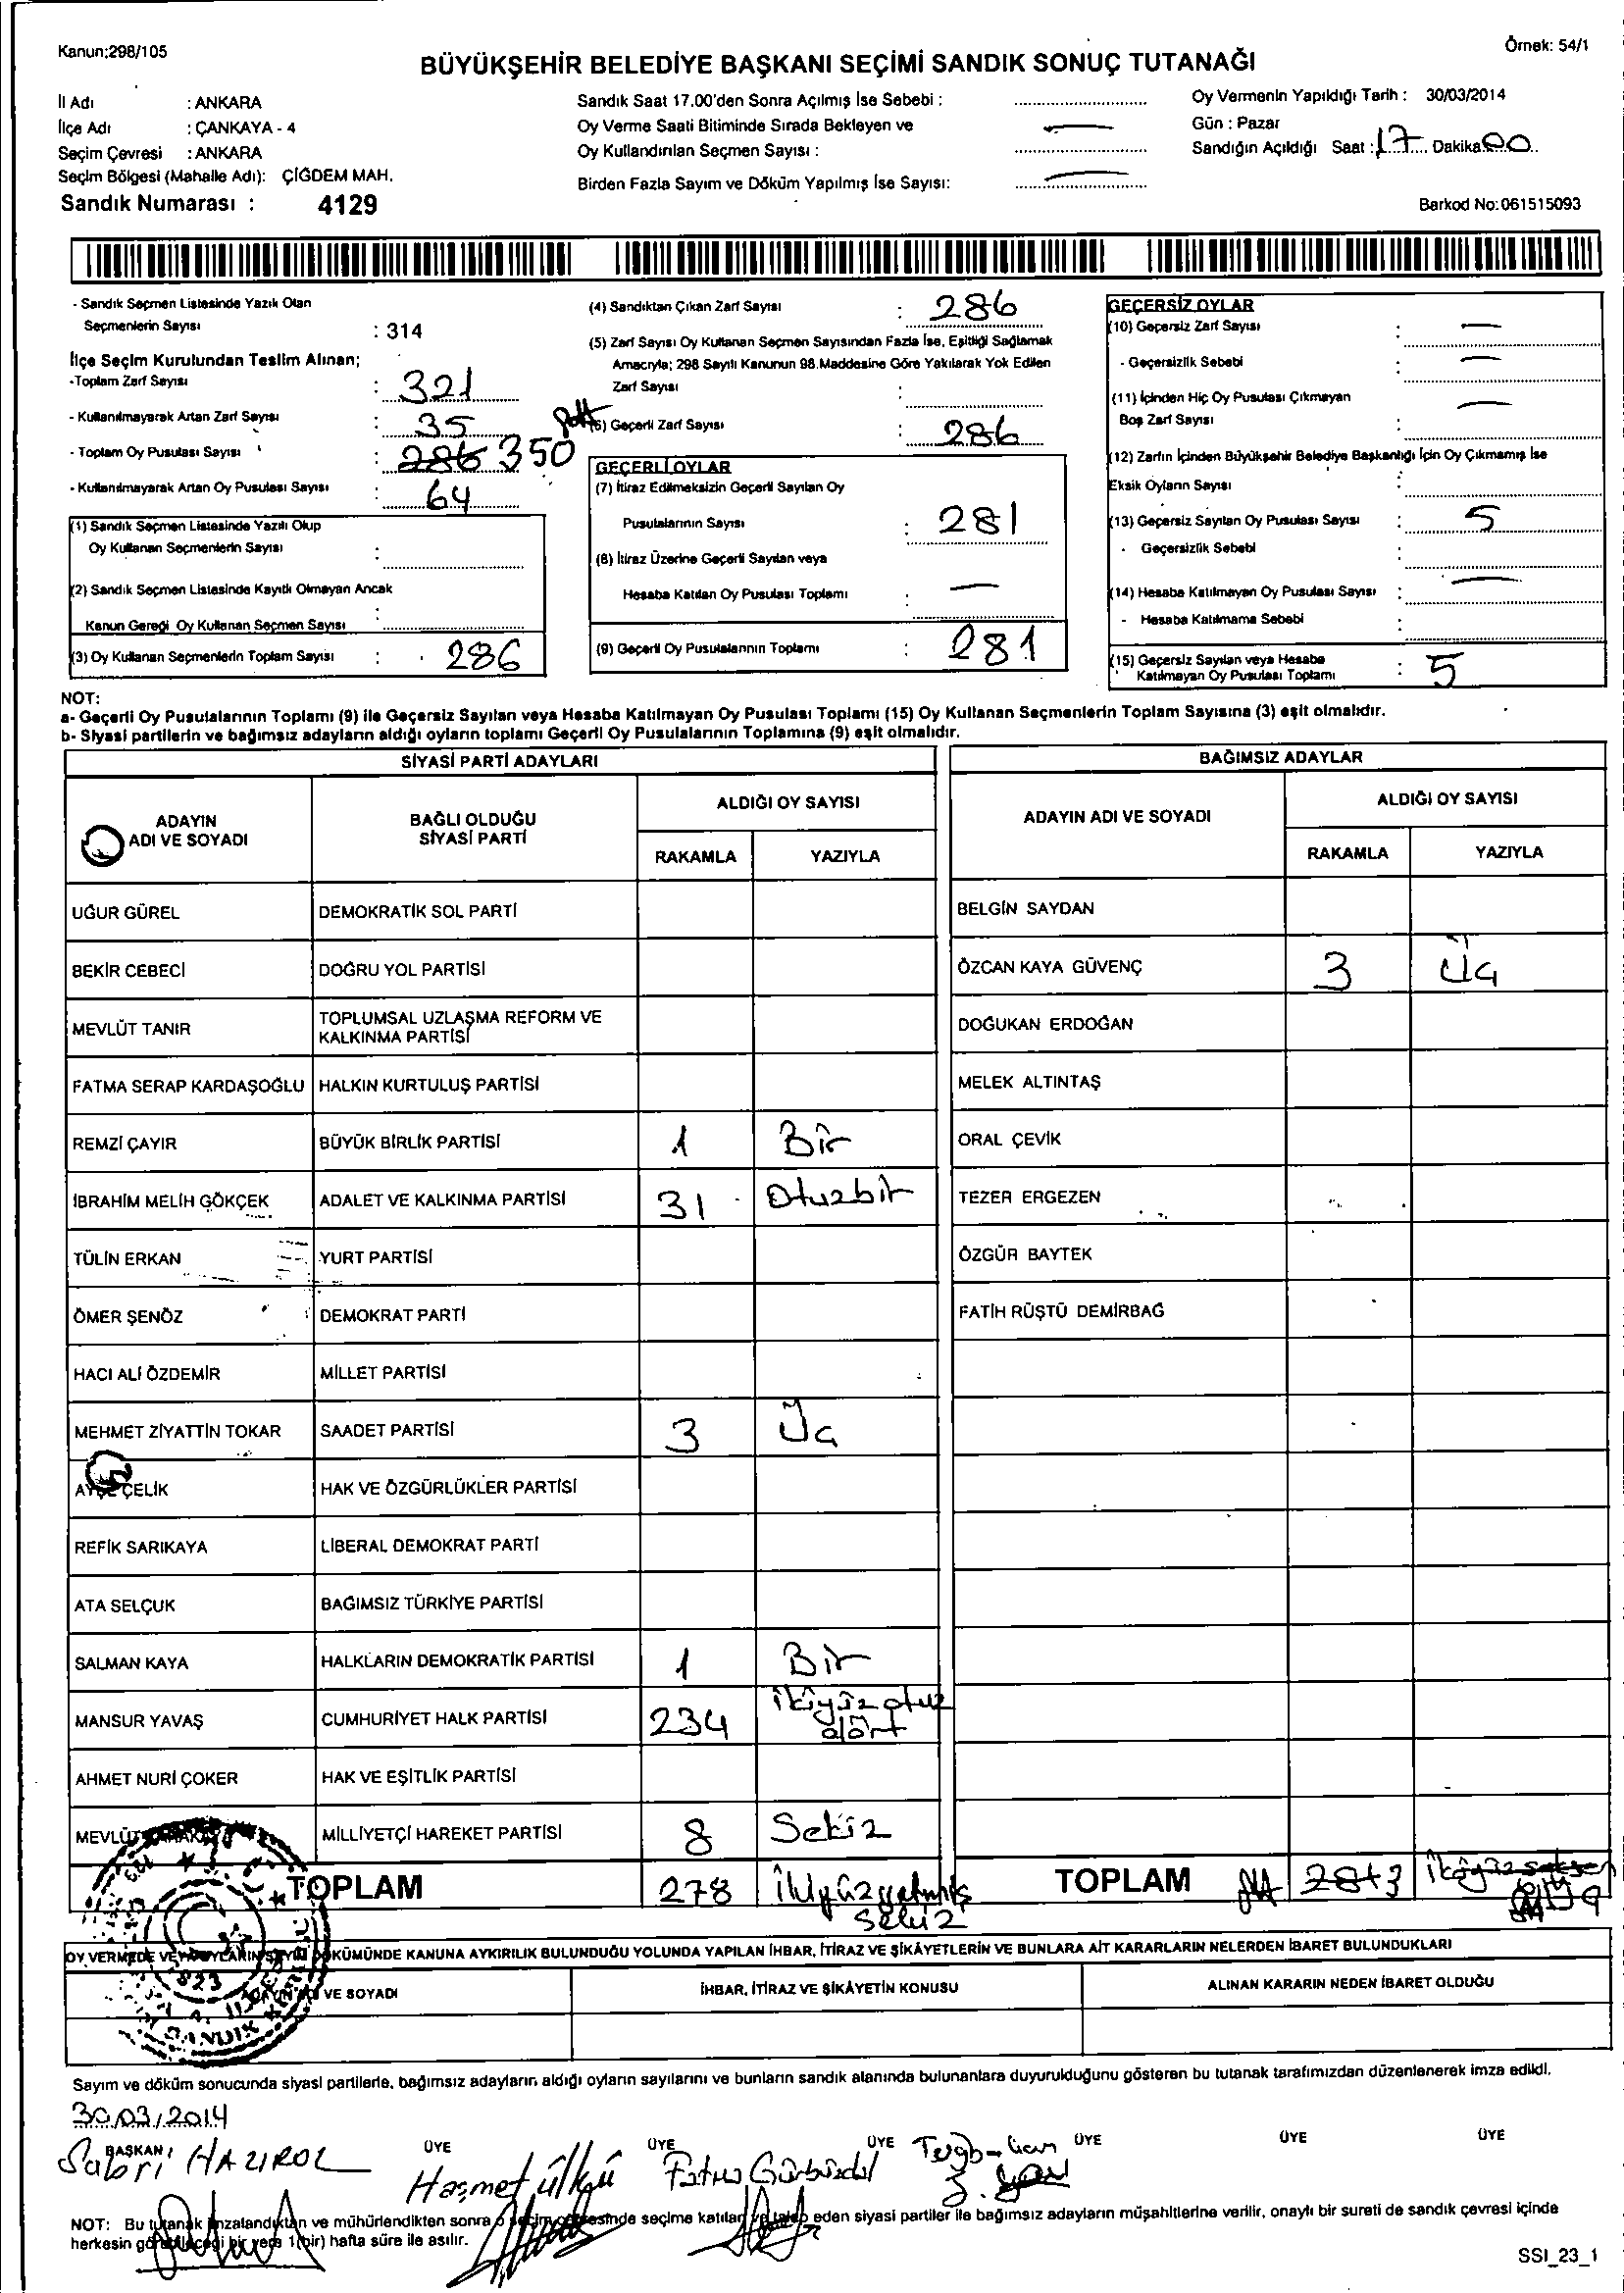 Kanun:298/105
Örnek: 54/1
BÜYÜKŞEHİR BELEDİYE BAŞKANI SEÇİMİ SANDIK SONUÇ TUTANAĞI
İl Adı : ANKARA
İlçe Adı : ÇANKAYA - 4
Seçim Çevresi : ANKARA
Seçim Bölgesi (Mahalle Adı): ÇİĞDEM MAH.
Sandık Numarası : 4129
Sandık Saat 17.00'den Sonra Açılmış İse Sebebi :
Oy Verme Saati Bitiminde Sırada Bekleyen ve
Oy Kullandırılan Seçmen Sayısı : —
Birden Fazla Sayım ve Döküm Yapılmış İse Sayısı: —
Oy Vermenin Yapıldığı Tarih : 30/03/2014
Gün : Pazar
Sandığın Açıldığı Saat : 17 Dakika 00
Barkod No:061515093
- Sandık Seçmen Listesinde Yazılı Olan
Seçmenlerin Sayısı : 314
İlçe Seçim Kurulundan Teslim Alınan;
-Toplam Zarf Sayısı : 321
- Kullanılmayarak Artan Zarf Sayısı : 35
- Toplam Oy Pusulası Sayısı : 286 350
- Kullanılmayarak Artan Oy Pusulası Sayısı : 64
(1) Sandık Seçmen Listesinde Yazılı Olup
Oy Kullanan Seçmenlerin Sayısı :
(2) Sandık Seçmen Listesinde Kayıtlı Olmayan Ancak
Kanun Gereği Oy Kullanan Seçmen Sayısı :
(3) Oy Kullanan Seçmenlerin Toplam Sayısı : 286
(4) Sandıktan Çıkan Zarf Sayısı : 286
(5) Zarf Sayısı Oy Kullanan Seçmen Sayısından Fazla İse, Eşitliği Sağlamak
Amacıyla; 298 Sayılı Kanunun 98.Maddesine Göre Yakılarak Yok Edilen
Zarf Sayısı :
(6) Geçerli Zarf Sayısı : 286
GEÇERLİ OYLAR
(7) İtiraz Edilmeksizin Geçerli Sayılan Oy
Pusulalarının Sayısı : 281
(8) İtiraz Üzerine Geçerli Sayılan veya
Hesaba Katılan Oy Pusulası Toplamı : —
(9) Geçerli Oy Pusulalarının Toplamı : 281
GEÇERSİZ OYLAR
(10) Geçersiz Zarf Sayısı : —
- Geçersizlik Sebebi : —
(11) İçinden Hiç Oy Pusulası Çıkmayan
Boş Zarf Sayısı : —
(12) Zarfın İçinden Büyükşehir Belediye Başkanlığı İçin Oy Çıkmamış İse
Eksik Oyların Sayısı :
(13) Geçersiz Sayılan Oy Pusulası Sayısı : 5
- Geçersizlik Sebebi :
(14) Hesaba Katılmayan Oy Pusulası Sayısı : —
- Hesaba Katılmama Sebebi :
(15) Geçersiz Sayılan veya Hesaba
Katılmayan Oy Pusulası Toplamı : 5
NOT:
a- Geçerli Oy Pusulalarının Toplamı (9) ile Geçersiz Sayılan veya Hesaba Katılmayan Oy Pusulası Toplamı (15) Oy Kullanan Seçmenlerin Toplam Sayısına (3) eşit olmalıdır.
b- Siyasi partilerin ve bağımsız adayların aldığı oyların toplamı Geçerli Oy Pusulalarının Toplamına (9) eşit olmalıdır.
SİYASİ PARTİ ADAYLARI
ADAYIN ADI VE SOYADI
BAĞLI OLDUĞU SİYASİ PARTİ
ALDIĞI OY SAYISI
RAKAMLA YAZIYLA
UĞUR GÜREL DEMOKRATİK SOL PARTİ
BEKİR CEBECİ DOĞRU YOL PARTİSİ
MEVLÜT TANIR TOPLUMSAL UZLAŞMA REFORM VE KALKINMA PARTİSİ
FATMA SERAP KARDAŞOĞLU HALKIN KURTULUŞ PARTİSİ
REMZİ ÇAYIR BÜYÜK BİRLİK PARTİSİ 1 Bir
İBRAHİM MELİH GÖKÇEK ADALET VE KALKINMA PARTİSİ 31 Otuzbir
TÜLİN ERKAN YURT PARTİSİ
ÖMER ŞENÖZ DEMOKRAT PARTİ
HACI ALİ ÖZDEMİR MİLLET PARTİSİ
MEHMET ZİYATTİN TOKAR SAADET PARTİSİ 3 Üç
AYŞE ÇELİK HAK VE ÖZGÜRLÜKLER PARTİSİ
REFİK SARIKAYA LİBERAL DEMOKRAT PARTİ
ATA SELÇUK BAĞIMSIZ TÜRKİYE PARTİSİ
SALMAN KAYA HALKLARIN DEMOKRATİK PARTİSİ 1 Bir
MANSUR YAVAŞ CUMHURİYET HALK PARTİSİ 234 ikiyüzotuz dört
AHMET NURİ ÇOKER HAK VE EŞİTLİK PARTİSİ
MEVLÜT MİLLİYETÇİ HAREKET PARTİSİ 8 Sekiz
TOPLAM 278 ikiyüzyetmiş sekiz
BAĞIMSIZ ADAYLAR
ADAYIN ADI VE SOYADI
ALDIĞI OY SAYISI
RAKAMLA YAZIYLA
BELGİN SAYDAN
ÖZCAN KAYA GÜVENÇ 3 Üç
DOĞUKAN ERDOĞAN
MELEK ALTINTAŞ
ORAL ÇEVİK
TEZER ERGEZEN
ÖZGÜR BAYTEK
FATİH RÜŞTÜ DEMİRBAĞ
TOPLAM 3
OY VERMEDE VEYA OYLARIN SAYIM DÖKÜMÜNDE KANUNA AYKIRILIK BULUNDUĞU YOLUNDA YAPILAN İHBAR, İTİRAZ VE ŞİKÂYETLERİN VE BUNLARA AİT KARARLARIN NELERDEN İBARET BULUNDUKLARI
ADAYIN ADI VE SOYADI
İHBAR, İTİRAZ VE ŞİKÂYETİN KONUSU
ALINAN KARARIN NEDEN İBARET OLDUĞU
Sayım ve döküm sonucunda siyasi partilerle, bağımsız adayların aldığı oyların sayılarını ve bunların sandık alanında bulunanlara duyurulduğunu gösteren bu tutanak tarafımızdan düzenlenerek imza edildi.
30/03/2014
BAŞKAN ÜYE ÜYE ÜYE ÜYE ÜYE ÜYE
Sabri HAZIROL Haşmet ülkü Fatma
NOT: Bu tutanak imzalandıktan ve mühürlendikten sonra o seçim çevresinde seçime katılan ve talep eden siyasi partiler ile bağımsız adayların müşahitlerine verilir, onaylı bir sureti de sandık çevresi içinde
herkesin görebileceği bir yere 1(bir) hafta süre ile asılır.
SSI_23_1